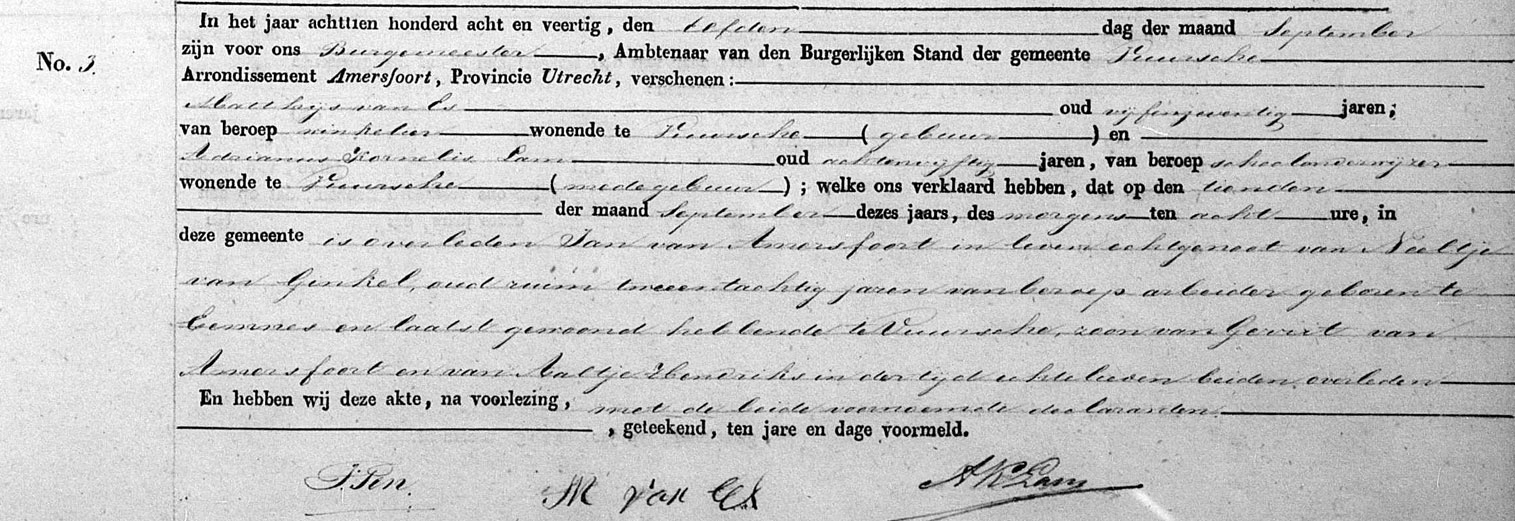 In het jaar achttien honderd acht en veertig, den Elfden dag der maand September
No. 3. zijn voor ons Burgemeester, Ambtenaar van den Burgerlijken Stand der gemeente Vuursche
Arrondissement Amersfoort, Provincie Utrecht, verschenen:
Matthijs van Es oud vijfenzeventig jaren;
van beroep winkelier wonende te Vuursche (gebuur) en
Adrianus Kornelis Lam oud achtenvijftig jaren, van beroep schoolonderwijzer
wonende te Vuursche (medegebuur); welke ons verklaard hebben, dat op den tienden
der maand September dezes jaars, des morgens ten acht ure, in
deze gemeente is overleden Jan van Amersfoort in leven echtgenoot van Neeltje
van Ginkel, oud ruim tweeentachtig jaren van beroep arbeider geboren te
Eemnes en laatst gewoond hebbende te Vuursche, zoon van Gerrit van
Amersfoort en van Aaltje Hendriks in der tijd echtelieden beiden overleden
En hebben wij deze akte, na voorlezing, met de beide voornoemde declaranten
, geteekend, ten jare en dage voormeld.
J. Pen. M van Es A K Lam